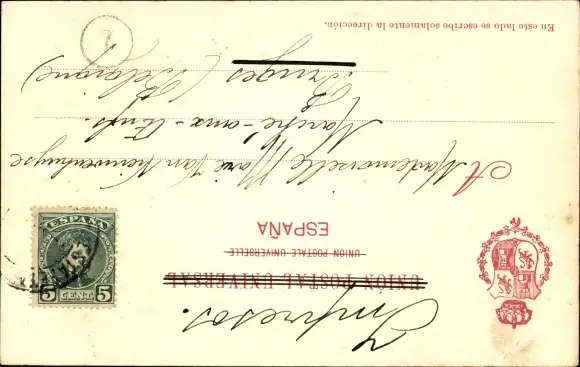 Impresos.
UNIÓN POSTAL UNIVERSAL
UNION POSTALE UNIVERSELLE
ESPAÑA
A Mademoiselle Marie Van
Marché-aux-
Bruges (Belgique)
En este lado se escribe solamente la dirección.
1
ESPAÑA
5 CENT. 5